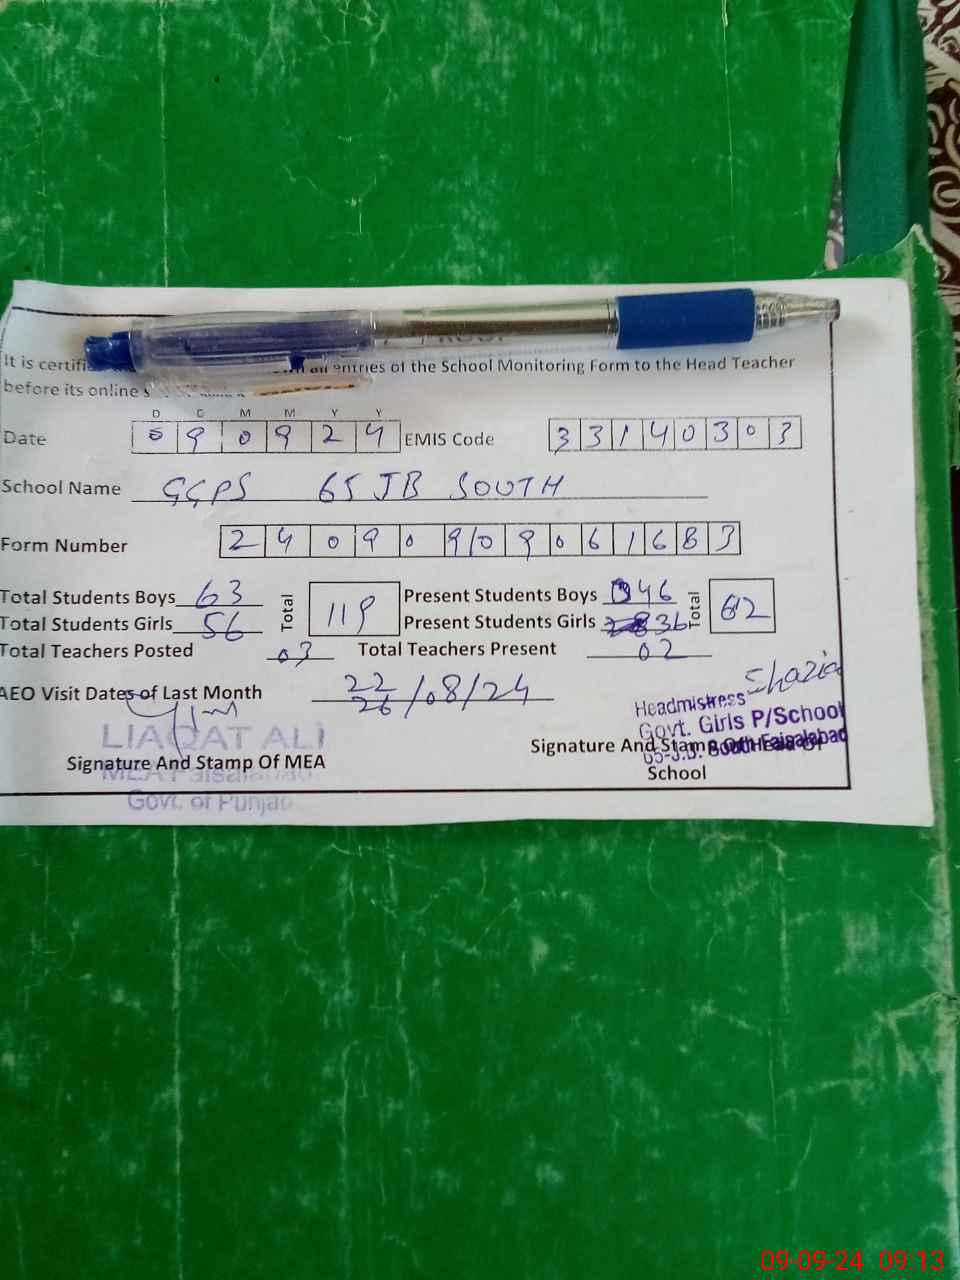 It is certifi all entries of the School Monitoring Form to the Head Teacher
before its online
D D M M Y Y
Date 0 9 0 9 2 4 EMIS Code 3 3 1 4 0 3 0 3
School Name GGPS 65 JB SOUTH
Form Number 2 4 0 9 0 9 0 9 0 6 1 6 8 3
Total Students Boys 63 Total 119 Present Students Boys 46 Total
Total Students Girls 56 Present Students Girls 36
Total Teachers Posted 03 Total Teachers Present 02
AEO Visit Dates of Last Month 22 26 /08/24
Shazia
Headmistress
Govt. Girls P/School
65-J.B. South Faisalabad
LIAQAT ALI
Signature And Stamp Of MEA
MEA Faisalabad
Govt. of Punjab
Signature And Stamp Of Head Of
School
09-09-24 09:13